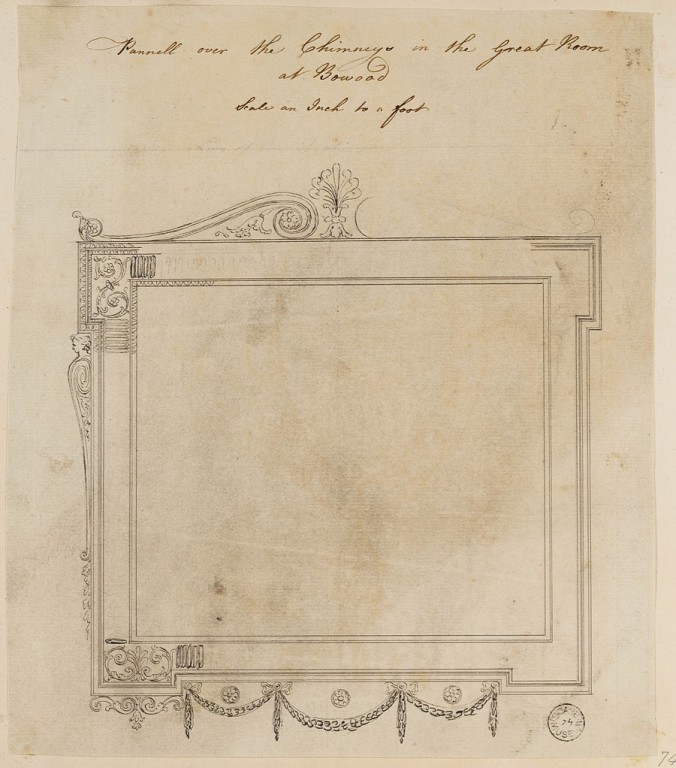 Pannell over the Chimneys in the Great Room
at Bowood
Scale an Inch to a foot
74
74